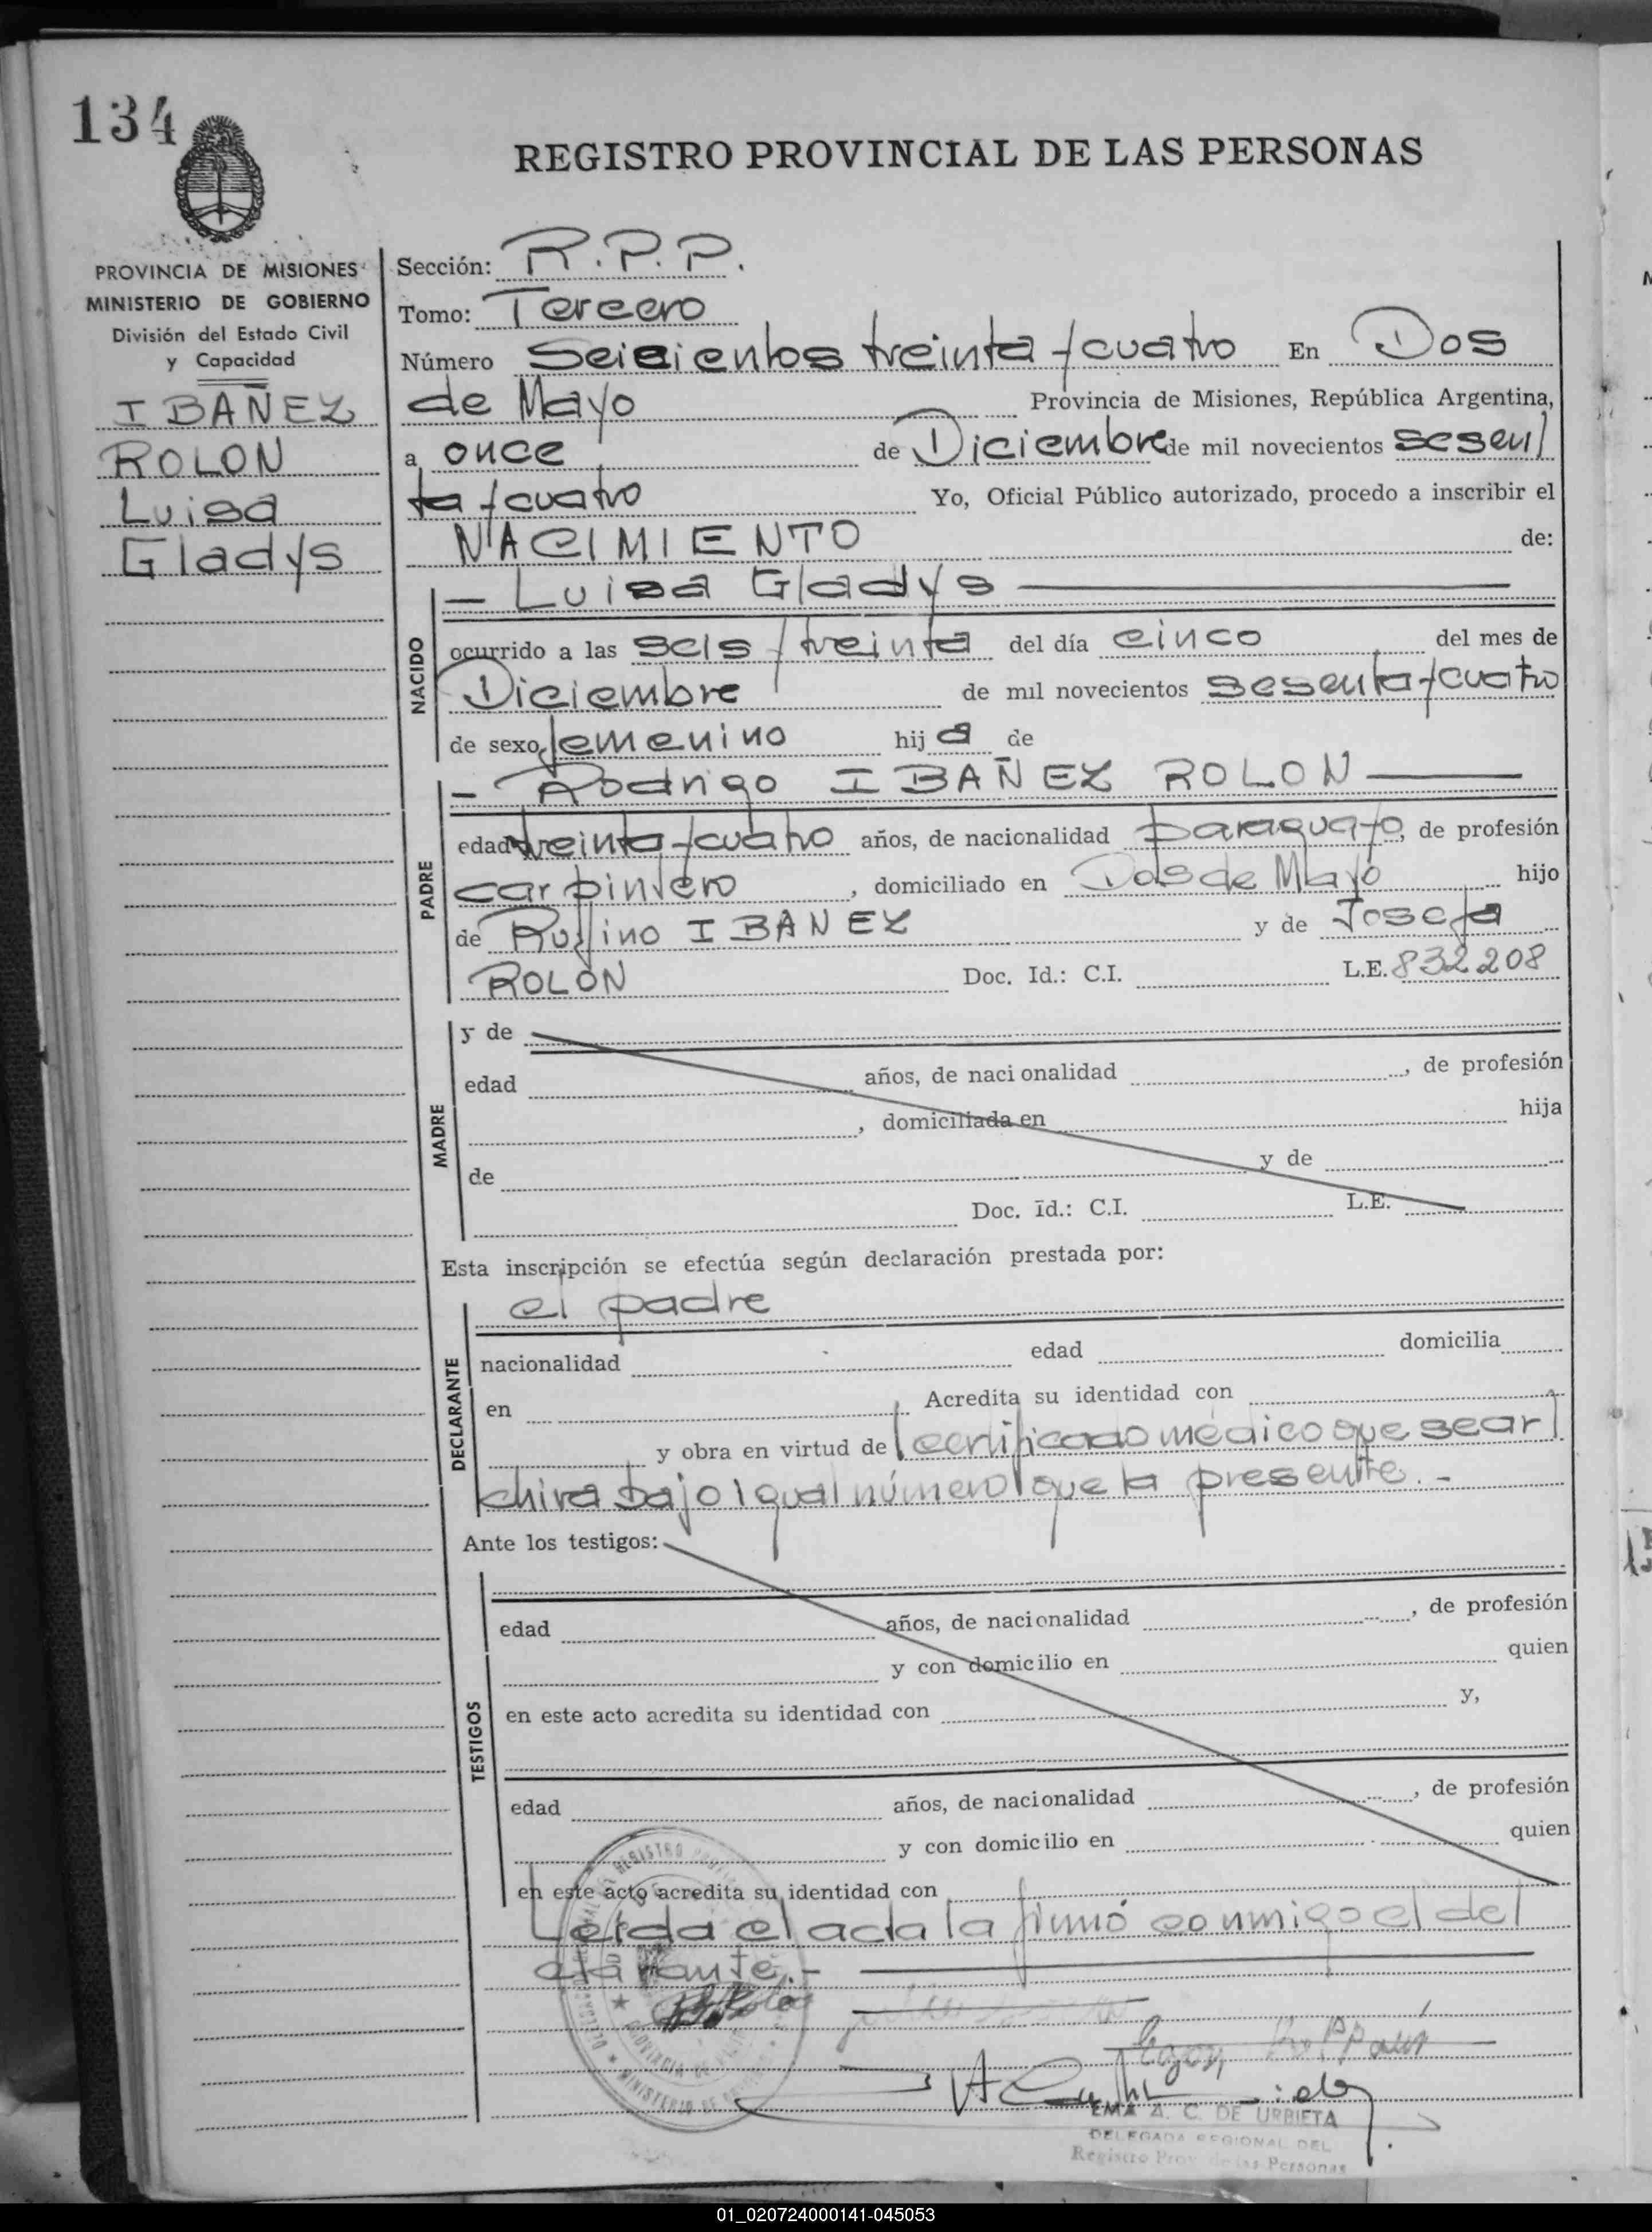 134
REGISTRO PROVINCIAL DE LAS PERSONAS
PROVINCIA DE MISIONES
MINISTERIO DE GOBIERNO
División del Estado Civil
y Capacidad
IBAÑEZ
ROLON
Luisa
Gladys
Sección: R.P.P.
Tomo: Tercero
Número Seisientos treinta y cuatro En Dos
de Mayo Provincia de Misiones, República Argentina,
a once de Diciembre de mil novecientos sesen
ta y cuatro Yo, Oficial Público autorizado, procedo a inscribir el
NACIMIENTO de:
— Luisa Gladys —
NACIDO
ocurrido a las seis y treinta del día cinco del mes de
Diciembre de mil novecientos sesenta y cuatro
de sexo femenino hija de
— Rodrigo IBAÑEZ ROLON —
PADRE
edad treinta y cuatro años, de nacionalidad paraguayo, de profesión
carpintero, domiciliado en Dos de Mayo hijo
de Rufino IBAÑEZ y de Josefa
ROLÓN Doc. Id.: C.I. L.E. 832208
MADRE
y de
edad años, de nacionalidad , de profesión
, domiciliada en hija
de y de
Doc. Id.: C.I. L.E.
Esta inscripción se efectúa según declaración prestada por:
el padre
DECLARANTE
nacionalidad edad domicilia
en Acredita su identidad con
y obra en virtud de certificado médico que se ar
chiva bajo igual número que la presente.-
Ante los testigos:
TESTIGOS
edad años, de nacionalidad , de profesión
y con domicilio en quien
en este acto acredita su identidad con y,
edad años, de nacionalidad , de profesión
y con domicilio en quien
en este acto acredita su identidad con
Leída el acta la firmó conmigo el del
clarante.-
EMA A. C. DE URBIETA
DELEGADA REGIONAL DEL
Registro Prov. de las Personas
01_020724000141-045053